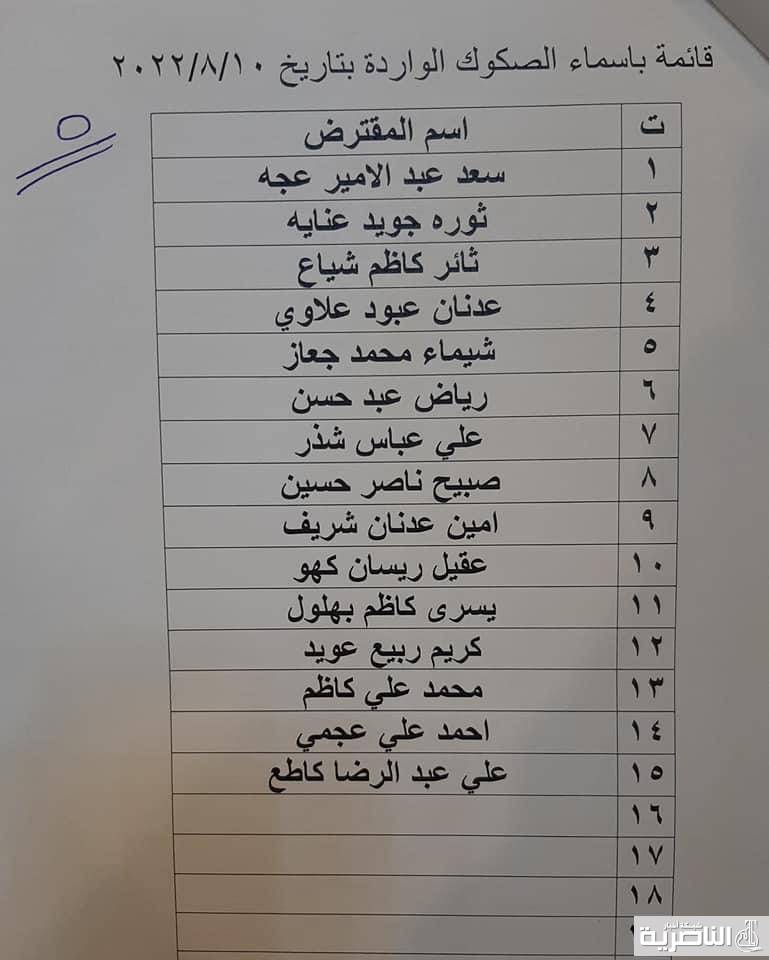 قائمة باسماء الصكوك الواردة بتاريخ ٢٠٢٢/٨/١٠
٥
ت اسم المقترض
١ سعد عبد الامير عجه
٢ ثوره جويد عنايه
٣ ثائر كاظم شياع
٤ عدنان عبود علاوي
٥ شيماء محمد جعاز
٦ رياض عبد حسن
٧ علي عباس شذر
٨ صبيح ناصر حسين
٩ امين عدنان شريف
١٠ عقيل ريسان كهو
١١ يسرى كاظم بهلول
١٢ كريم ربيع عويد
١٣ محمد علي كاظم
١٤ احمد علي عجمي
١٥ علي عبد الرضا كاطع
١٦
١٧
١٨
شبكة اخبار
الناصرية